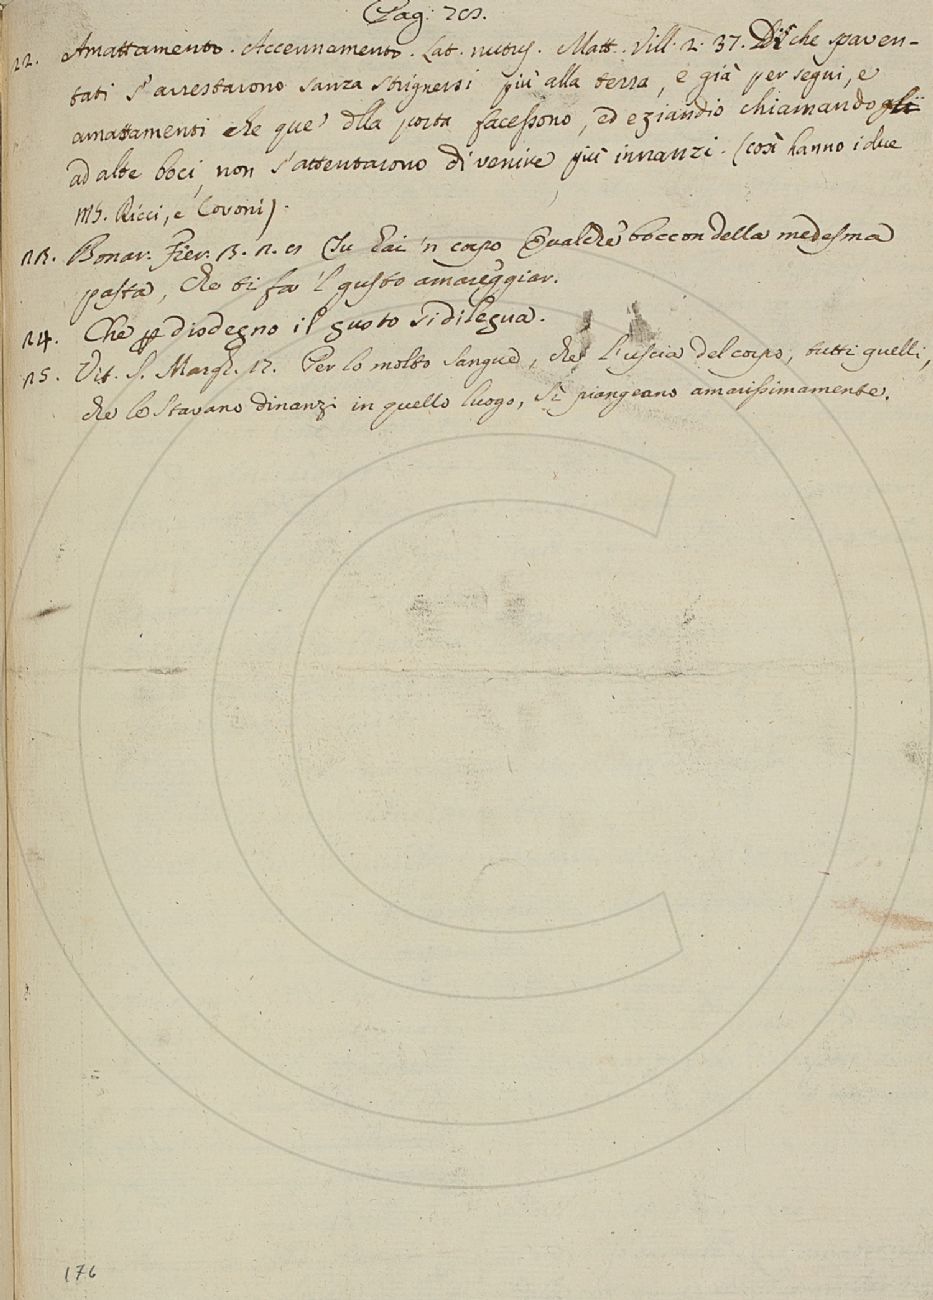 Pag. 201.
22. Amattamento. Accennamento. Lat. nutus. Matt. Vill. 2. 37. Di che spaven-
tati s'arrestarono sanza strignersi più alla terra, e già per segni, e
amattamenti che que' dlla porta facessono, ed eziandio chiamandogli
ad alte boci, non s'attentarono di venire più innanzi. (così hanno i due
MS. Ricci, e Covoni).
23. Bonar. Fier. 3. 2. 9 Tu hai 'n corpo Qualche boccon della medesma
pasta, che ti fa 'l gusto amareggiar.
24. Che p disdegno il gusto si dilegua.
25. Vit. S. Margh. 17. Per lo molto sangue, che l'uscia del corpo, tutti quelli,
che le stavano dinanzi in quello luogo, si piangeano amarissimamente.
176